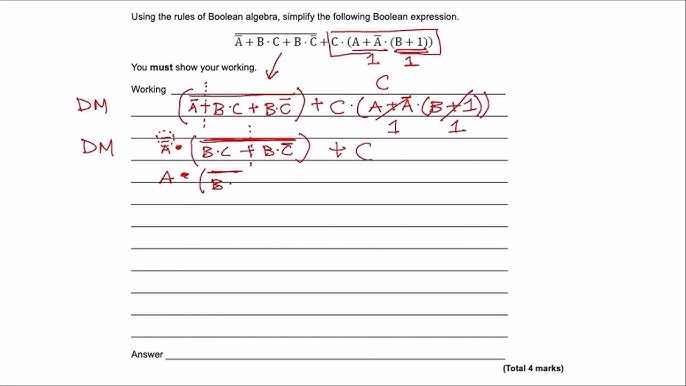 Using the rules of Boolean algebra, simplify the following Boolean expression.
A̅ + B · C + B · C̅ + C · (A + A̅ · (B + 1))
1 1
You must show your working.
C
Working
DM (A̅ + B·C + B·C̅) + C · (A + A̅ · (B + 1))
1 1
DM A̿ • (B·C + B·C̅) + C
A • (B ·
Answer
(Total 4 marks)